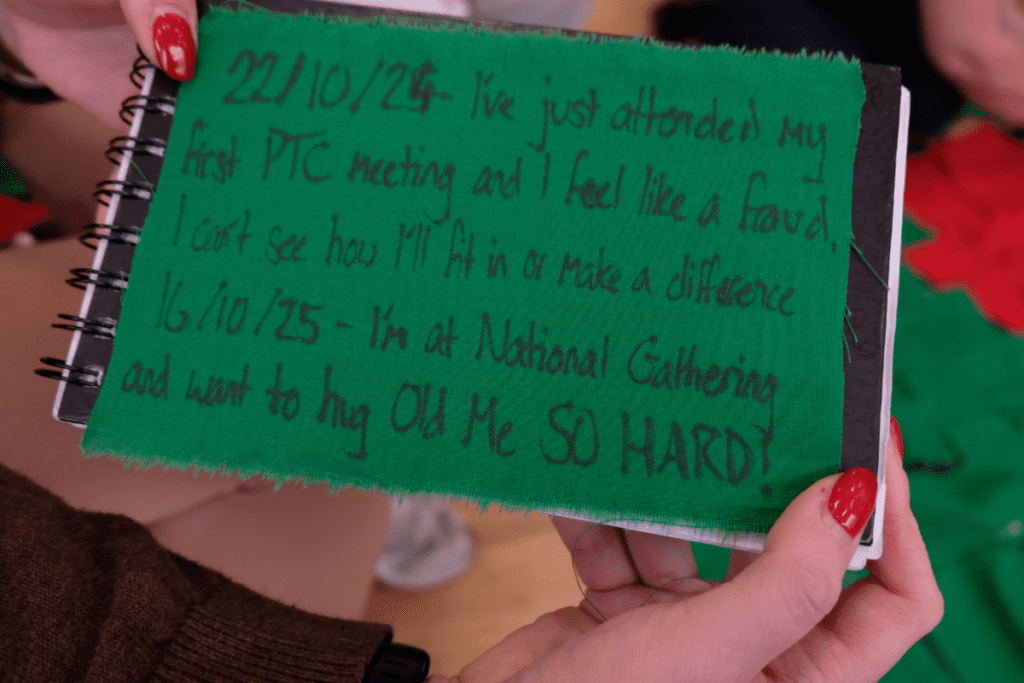 22/10/24 - I've just attended my
first PTC meeting and I feel like a fraud.
I can't see how I'll fit in or make a difference
16/10/25 - I'm at National Gathering
and want to hug Old Me SO HARD!